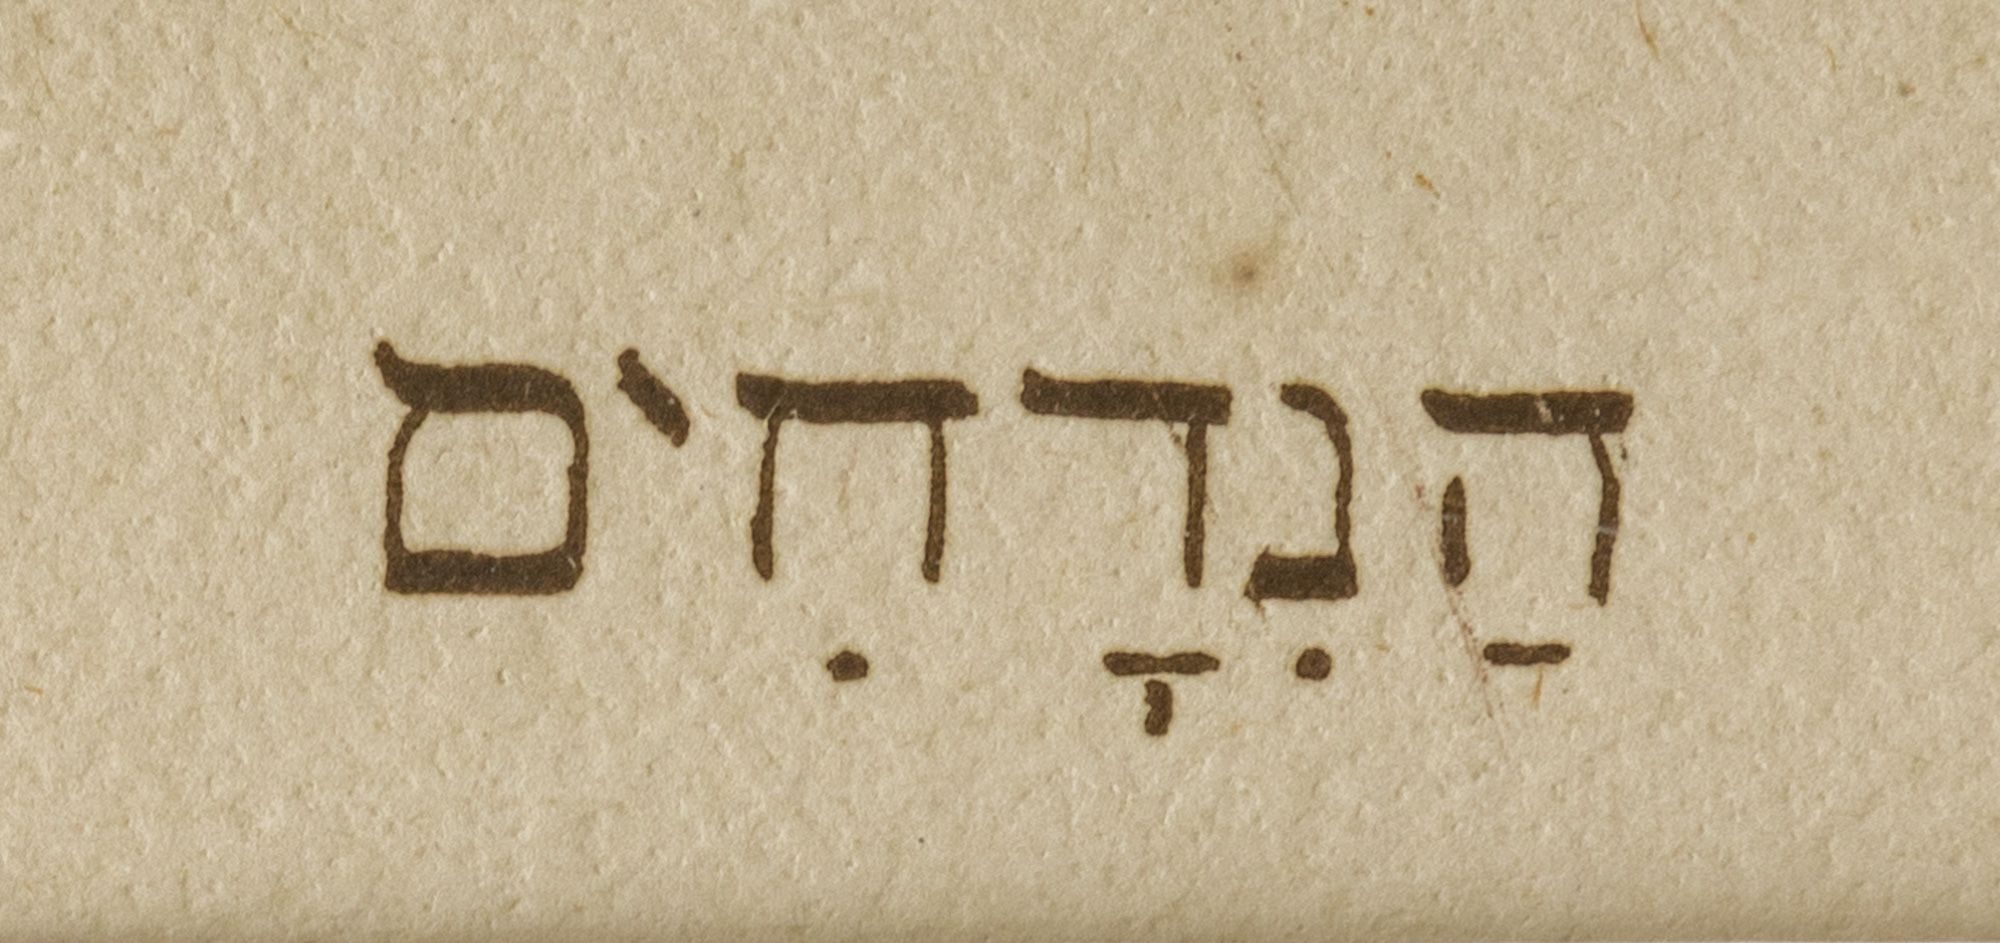 הַנִדָחִים